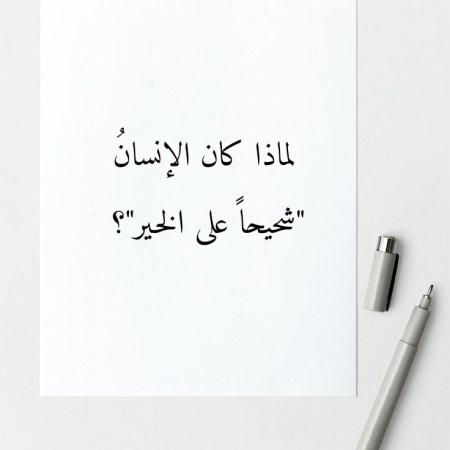 لماذا كان الإنسانُ
"شحيحاً على الخير"؟